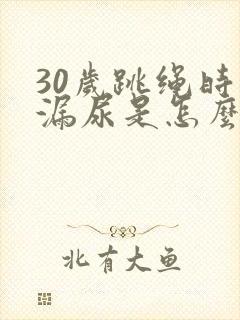 30歲跳绳時
漏尿是怎麼
北有大鱼